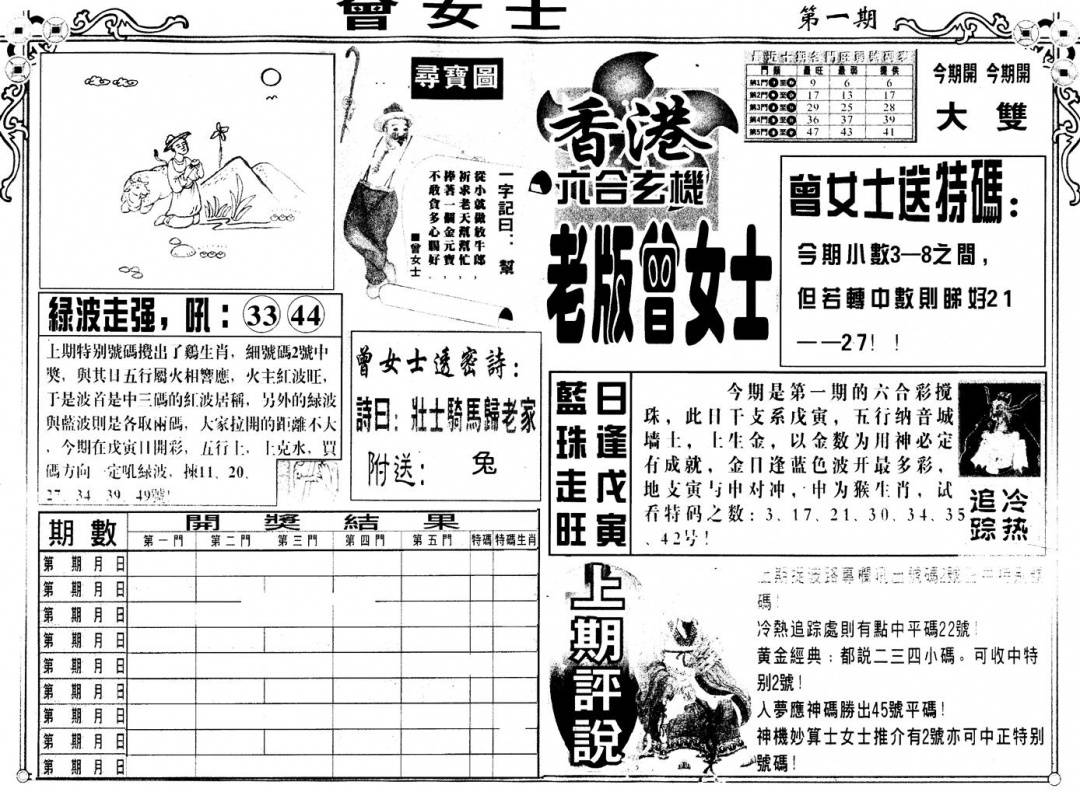 曾女士
第一期
尋寶圖
一字記曰：幫
從小就做放牛郎，
祈求老天幫幫忙，
捧著一個金元寶，
不敢貪多心腸好。
曾女士
香港
六合玄機
老版曾女士
門類 最旺 最弱 提供
第1門 9 6 6
第2門 17 13 17
第3門 29 25 28
第4門 36 37 39
第5門 47 43 41
今期開 今期開
大 雙
曾女士送特碼：
今期小數3—8之間，
但若轉中數則睇好21
——27！！
綠波走强，吼：33 44
上期特别號碼攪出了鷄生肖，細號碼2號中
獎，與其日五行屬火相響應，火主紅波旺，
于是波首是中三碼的紅波居稱，另外的緑波
與藍波則是各取兩碼，大家拉開的距離不大
，今期在戊寅日開彩，五行土，土克水，買
碼方向一定吼緑波，揀11、20、
27、34、39、49號！
曾女士透密詩：
詩曰：壯士騎馬歸老家
附送： 兔
日逢戊寅
藍珠走旺
今期是第一期的六合彩搅
珠，此日干支系戊寅，五行纳音城
墙土，土生金，以金数为用神必定
有成就，金日逢蓝色波开最多彩，
地支寅与申对冲，申为猴生肖，试
看特码之数：3、17、21、30、34、35
、42号！
冷热
追踪
期數 開獎結果
第一門 第二門 第三門 第四門 第五門 特碼 特碼生肖
第 期 月 日
第 期 月 日
第 期 月 日
第 期 月 日
第 期 月 日
第 期 月 日
第 期 月 日
第 期 月 日
第 期 月 日
上期評說
上期捉波路專欄吼出號碼2號正中特别號
碼！
冷熱追踪處則有點中平碼22號！
黃金經典：都説二三四小碼。可收中特
别2號！
人夢應神碼勝出45號平碼！
神機妙算士女士推介有2號亦可中正特别
號碼！